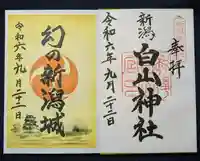 奉拝
新潟
白山神社
令和六年九月二十二日
幻の新潟城
令和六年九月二十二日